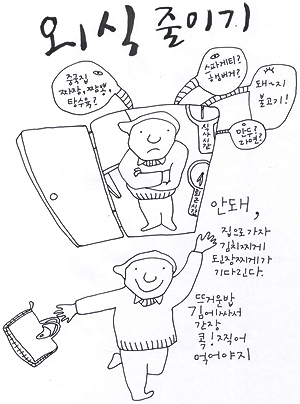 외식 줄이기
중국집
짜장, 짬뽕,
탕수육?
스파게티?
햄버거?
돼~지
불고기!
만두?
라면?
식사시간
퇴근시간
안돼,
집으로 가자
김치찌개
된장찌개가
기다린다.
뜨거운 밥
김에 싸서
간장
콕! 찍어
먹어야지